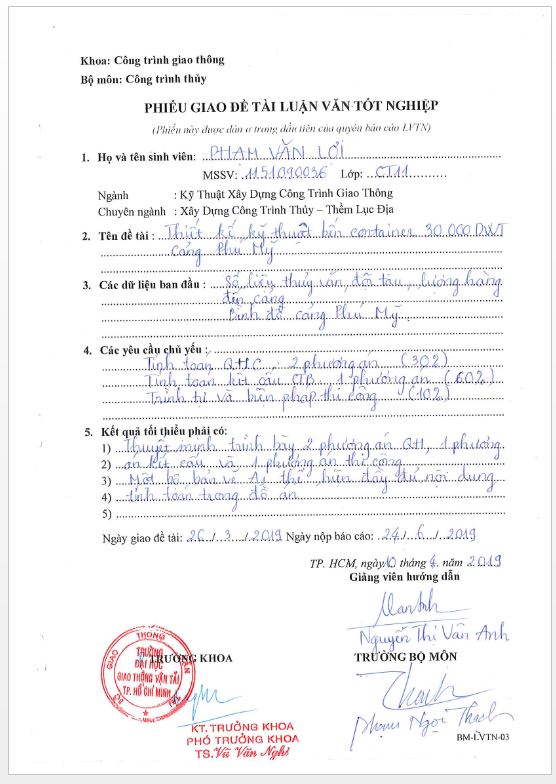 Khoa: Công trình giao thông
Bộ môn: Công trình thủy
PHIẾU GIAO ĐỀ TÀI LUẬN VĂN TỐT NGHIỆP
(Phiếu này được dán ở trang đầu tiên của quyển báo cáo LVTN)
1. Họ và tên sinh viên: PHẠM VĂN LỢI
MSSV: 1151090036 Lớp: CT11
Ngành : Kỹ Thuật Xây Dựng Công Trình Giao Thông
Chuyên ngành : Xây Dựng Công Trình Thủy – Thềm Lục Địa
2. Tên đề tài : Thiết kế kỹ thuật bến container 30.000 DWT
cảng Phú Mỹ
3. Các dữ liệu ban đầu : Số liệu thủy văn, đội tàu, lượng hàng
đến cảng
Bình đồ cảng Phú Mỹ
4. Các yêu cầu chủ yếu :
Tính toán QHC, 2 phương án (30%)
Tính toán kết cấu CTB 1 phương án (60%)
Trình tự và biện pháp thi công (10%)
5. Kết quả tối thiểu phải có:
1) Thuyết minh trình bày 2 phương án QH, 1 phương
2) án kết cấu và 1 phương án thi công
3) Một bộ bản vẽ A1 thể hiện đầy đủ nội dung
4) tính toán trong đồ án
5)
Ngày giao đề tài: 26/3/2019 Ngày nộp báo cáo: 24/6/2019
TP. HCM, ngày 10 tháng 4 năm 2019
Giảng viên hướng dẫn
Nguyễn Thị Vân Anh
TRƯỞNG KHOA TRƯỞNG BỘ MÔN
TRƯỜNG
ĐẠI HỌC
GIAO THÔNG VẬN TẢI
TP. HỒ CHÍ MINH
KT. TRƯỞNG KHOA
PHÓ TRƯỞNG KHOA
TS. Vũ Văn Nghi
Phạm Ngọc Thạch
BM-LVTN-03